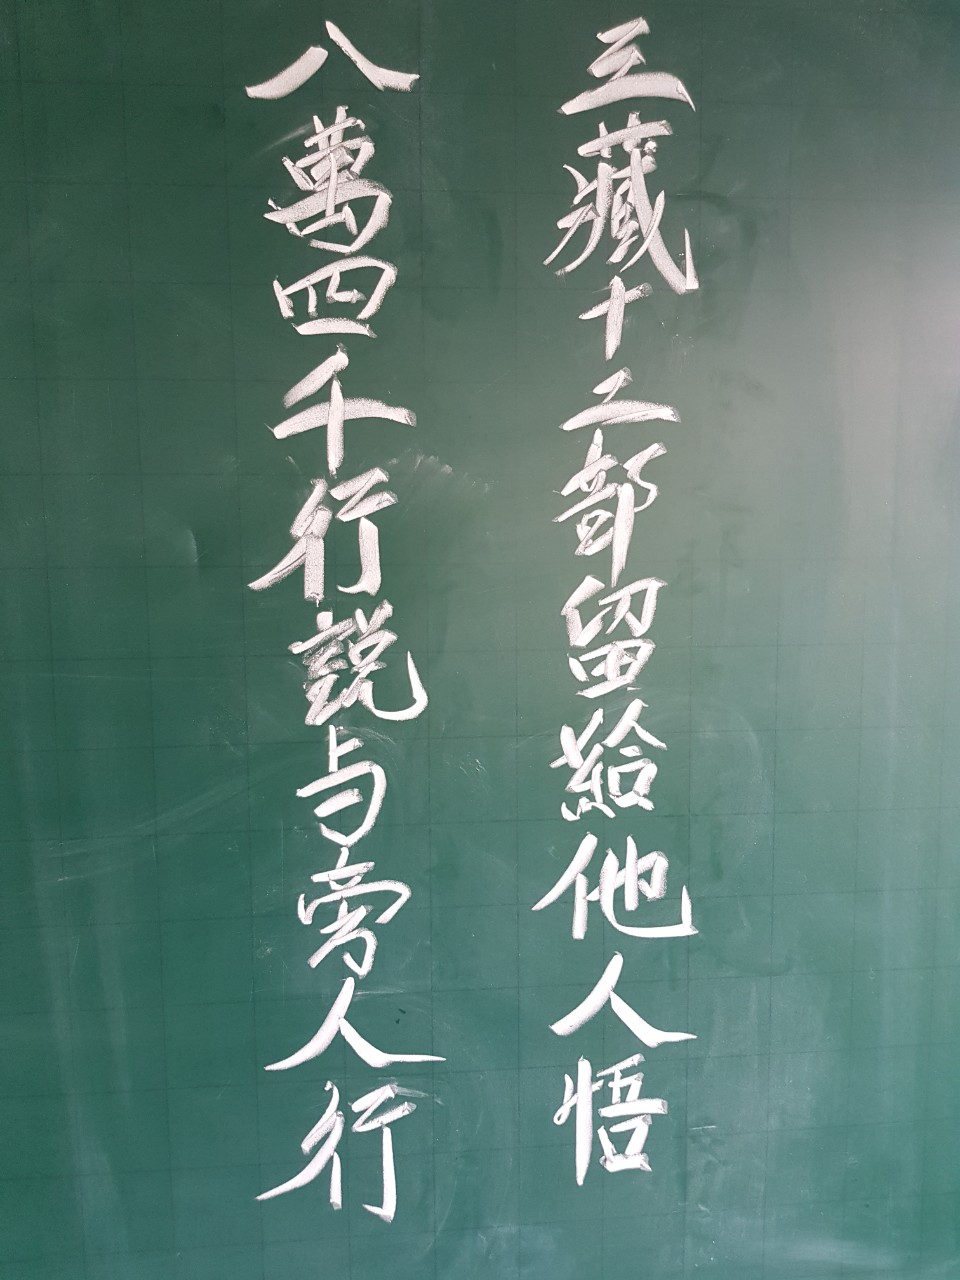 三藏十二部留給他人悟
八萬四千行説与旁人行